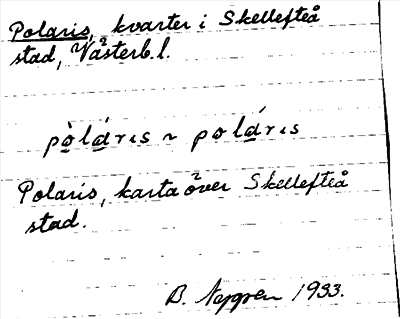 Polaris, kvarter i Skellefteå
stad, Västerb.l.
pòláris ~ poláris
Polaris, karta över Skellefteå
stad.
B. 1933.